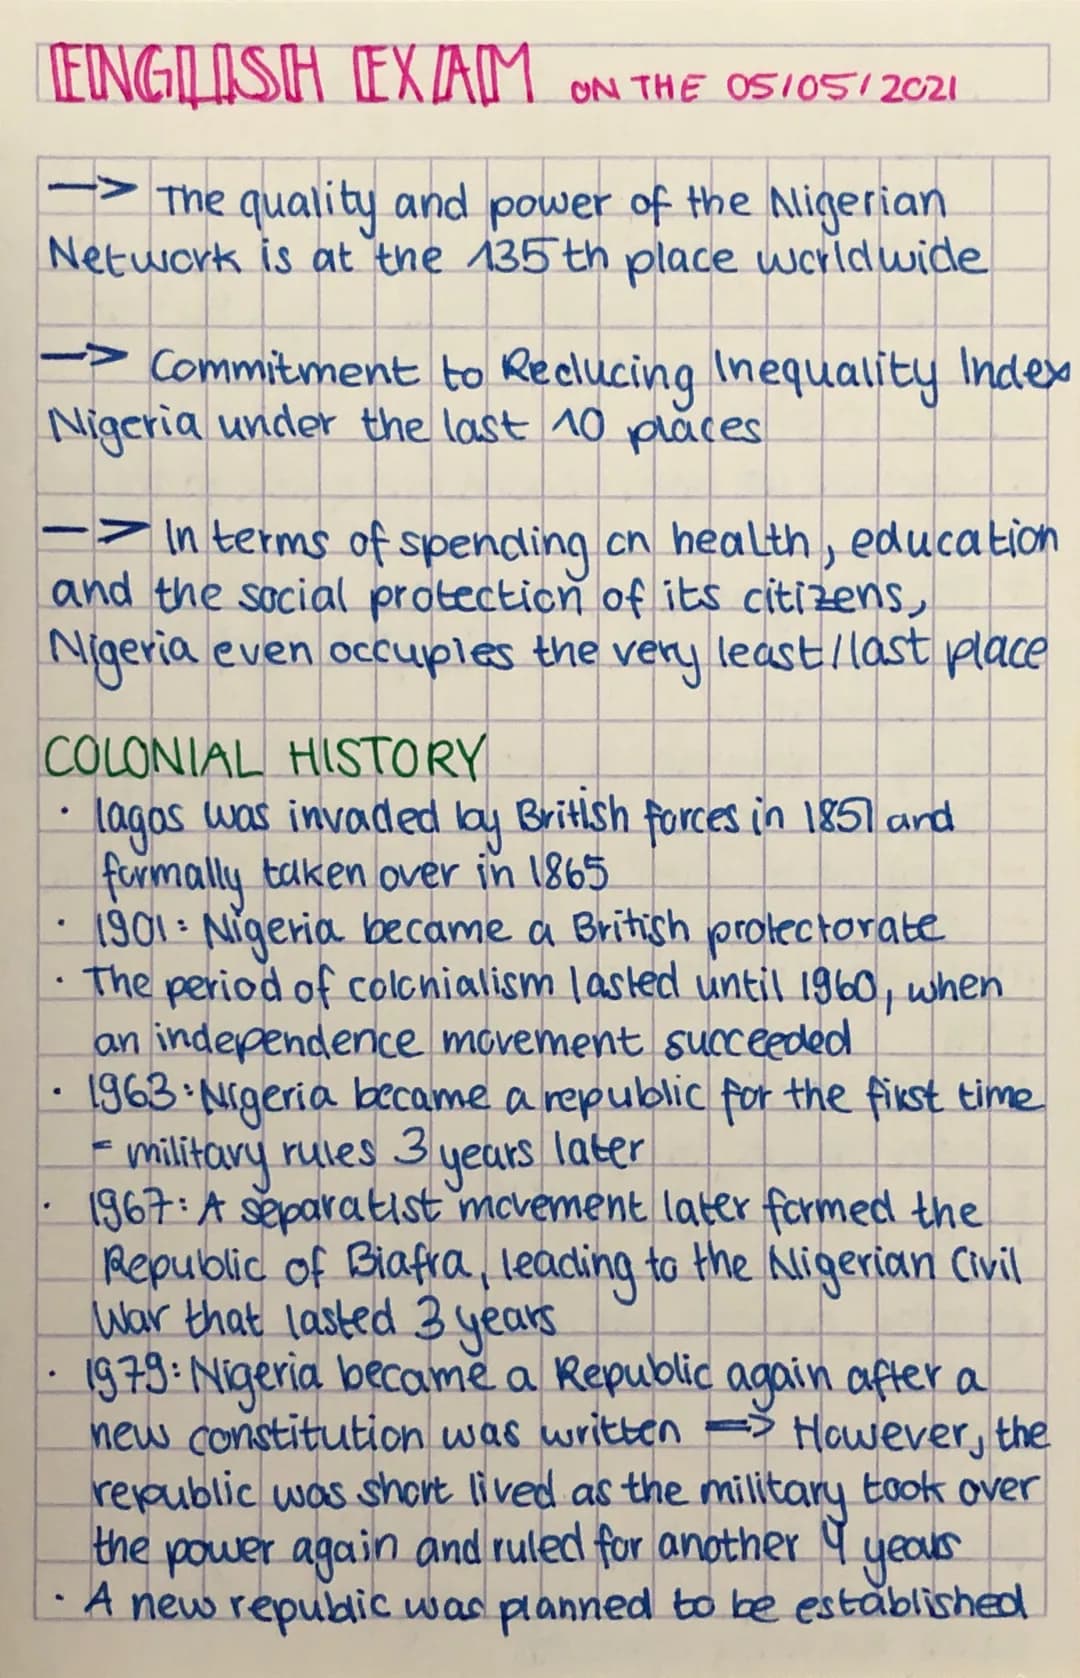 ENGLISH EXAM ON THE 05/05/2021
—> The quality and power of the Nigerian
Network is at the 135th place worldwide
—> Commitment to Reducing Inequality Index
Nigeria under the last 10 places
—> In terms of spending on health, education
and the social protection of its citizens,
Nigeria even occupies the very least/last place
COLONIAL HISTORY
• lagos was invaded by British forces in 1851 and
formally taken over in 1865
• 1901: Nigeria became a British protectorate
• The period of colonialism lasted until 1960, when
an independence movement succeeded
• 1963: Nigeria became a republic for the first time
= military rules 3 years later
• 1967: A separatist movement later formed the
Republic of Biafra, leading to the Nigerian Civil
War that lasted 3 years
• 1979: Nigeria became a Republic again after a
new constitution was written => However, the
republic was short lived as the military took over
the power again and ruled for another 4 years
• A new republic was planned to be established